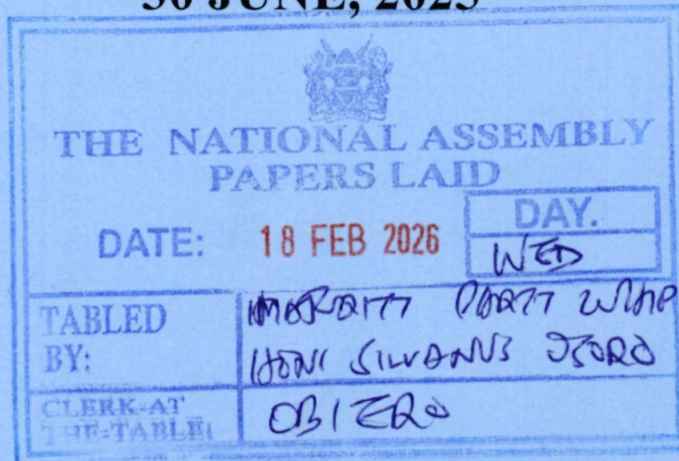 30 JUNE, 2025
THE NATIONAL ASSEMBLY
PAPERS LAID
DATE: 18 FEB 2026
DAY.
WED
TABLED BY:
MAJORITY PARTY WHIP
HON. SILVANUS OSORO
CLERK-AT THE-TABLE:
OBIERO